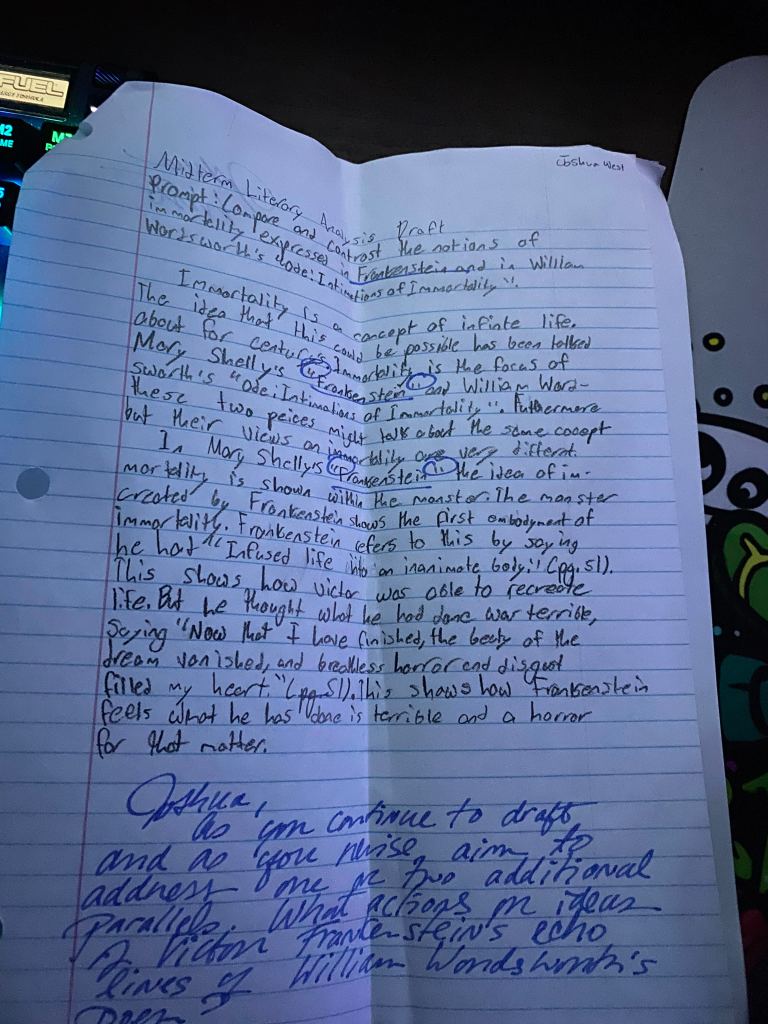 FUEL
M2
Joshua West
Midterm Literary Analysis Draft
Prompt: Compare and contrast the notions of
immortality expressed in Frankenstein and in William
Wordsworth's "Ode: Intimations of Immortality".
Immortality is a concept of infinite life.
The idea that this could be possible has been talked
about for centuries. Immortality is the focus of
Mary Shelly's "Frankenstein" and William Word-
sworth's "Ode: Intimations of Immortality". Futhermore
these two peices might talk about the same cocept
but their views on immortality are very differnt.
In Mary Shellys "Frankenstein" the idea of im-
mortality is shown within the monster. The monster
created by Frankenstein shows the first embodyment of
immortality. Frankenstein refers to this by saying
he had "Infused life into an inanimate body." (pg.51).
This shows how victor was able to recreate
life. But he thought what he had done was terrible,
Saying "Now that I have finished, the beaty of the
dream vanished, and breathless horror and disgust
filled my heart." (pg.51). This shows how Frankenstein
feels what he has done is terrible and a horror
for that matter.
Joshua,
As you continue to draft
and as you revise aim to
address one or two additional
parallels. What actions or ideas
of Victor Frankenstein's echo
lines of William Wordsworth's